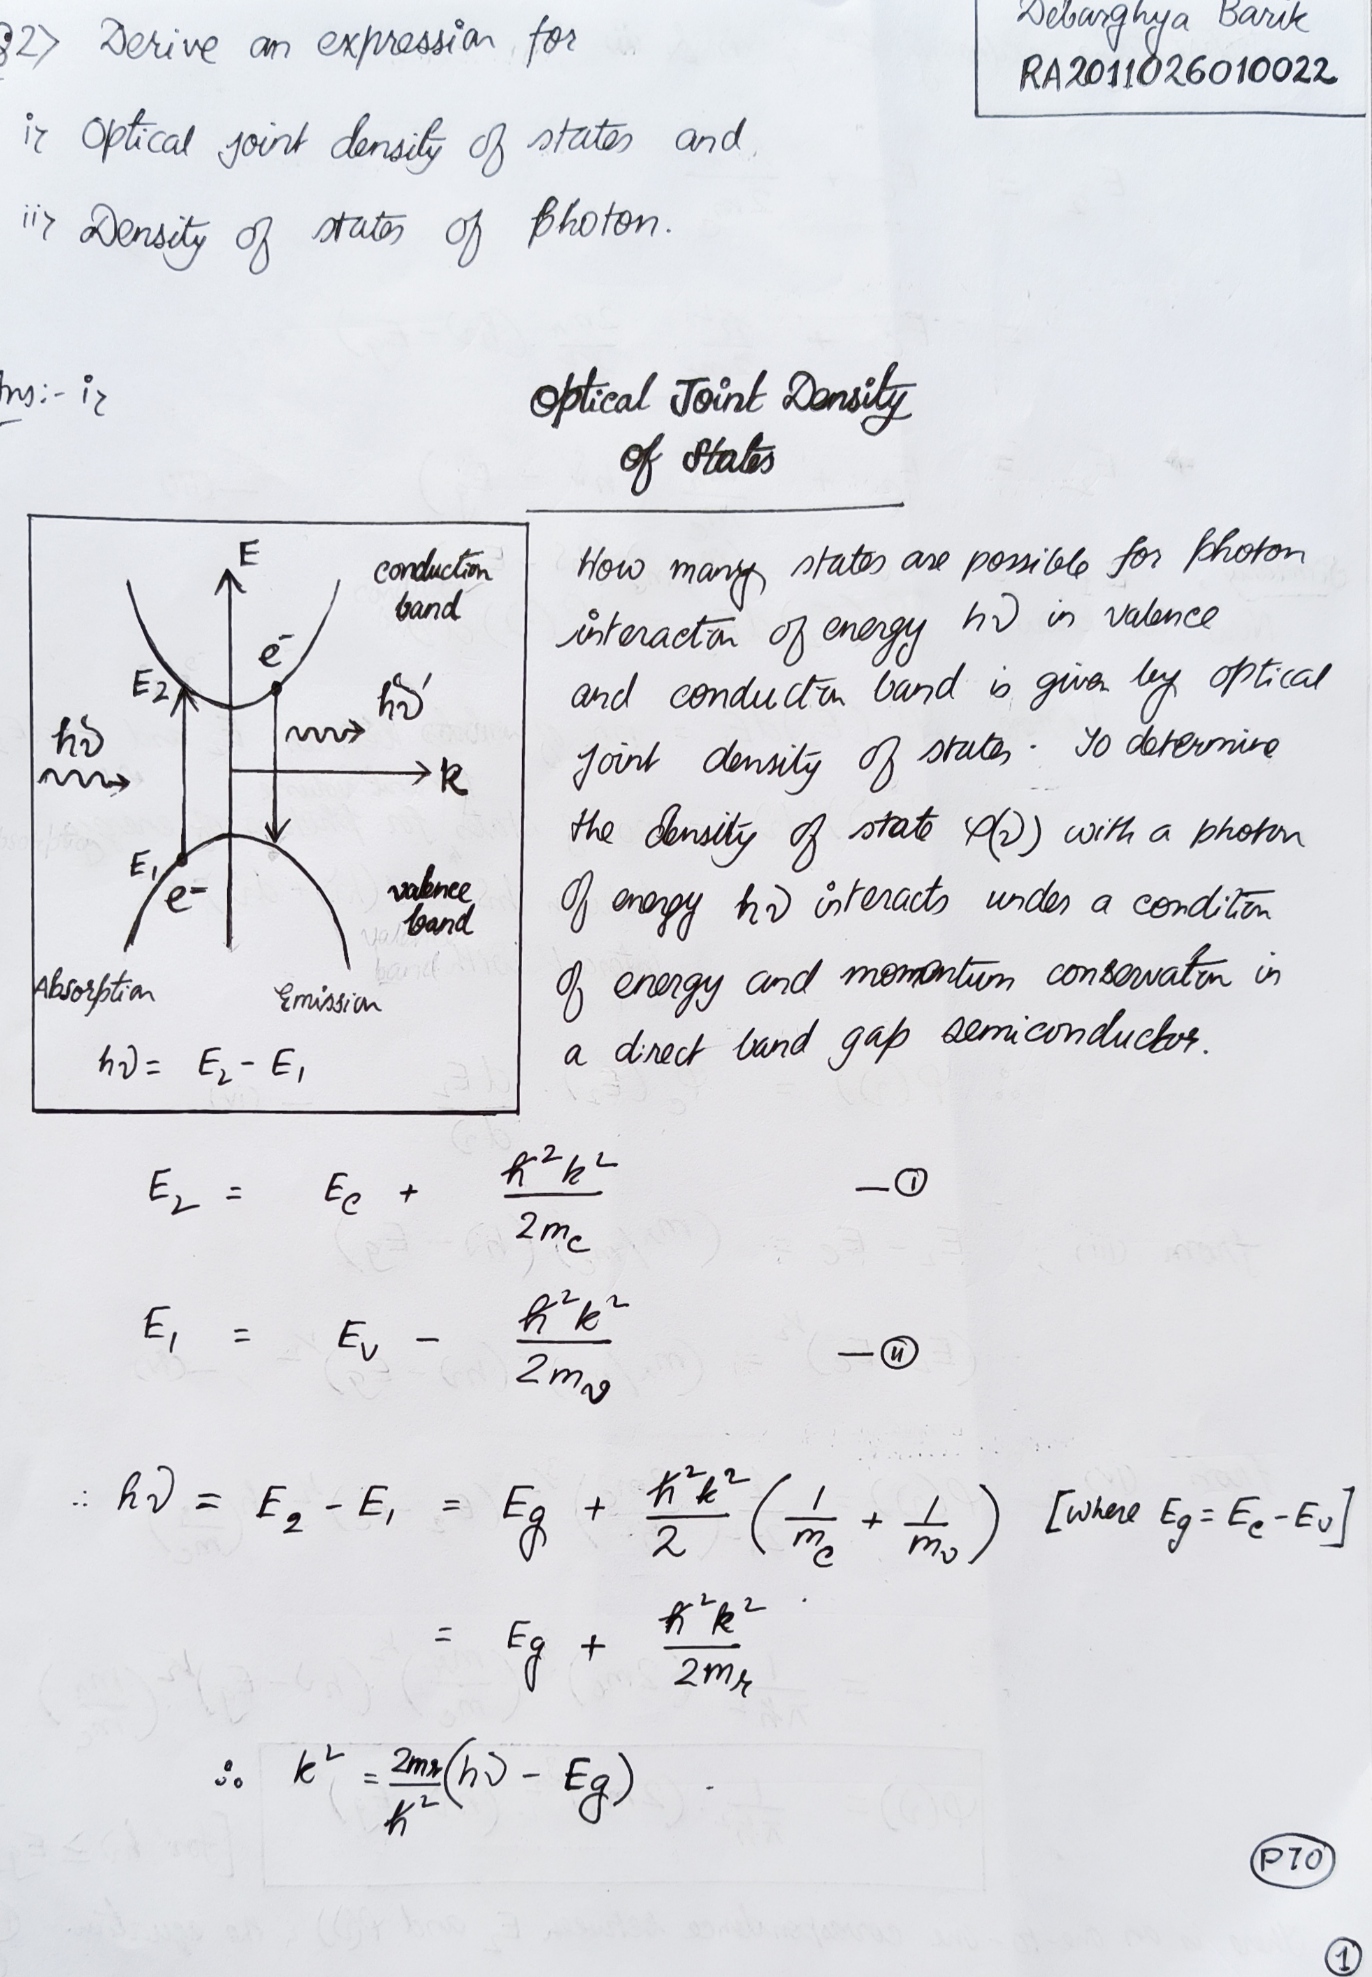 Debarghya Barik
RA2011026010022
Q2> Derive an expression for
i> Optical joint density of states and
ii> Density of states of photon.
Ans:- i>
Optical Joint Density
of States
E
conduction
band
e⁻
E₂
hν
hν'
k
E₁
e⁻
valence
band
Absorption
Emission
hν = E₂ - E₁
How many states are possible for photon
interactn of energy hν in valence
and conductn band is given by optical
joint density of states. To determine
the density of state φ(ν) with a photon
of energy hν interacts under a conditn
of energy and momentum conservatn in
a direct band gap semiconductor.
E₂ = E_c + ħ²k²/2m_c — (i)
E₁ = E_v - ħ²k²/2m_v — (ii)
∴ hν = E₂ - E₁ = Eg + ħ²k²/2 (1/m_c + 1/m_v) [where Eg = E_c - E_v]
= Eg + ħ²k²/2m_r
∴ k² = 2m_r/ħ² (hν - Eg)
PTO
1